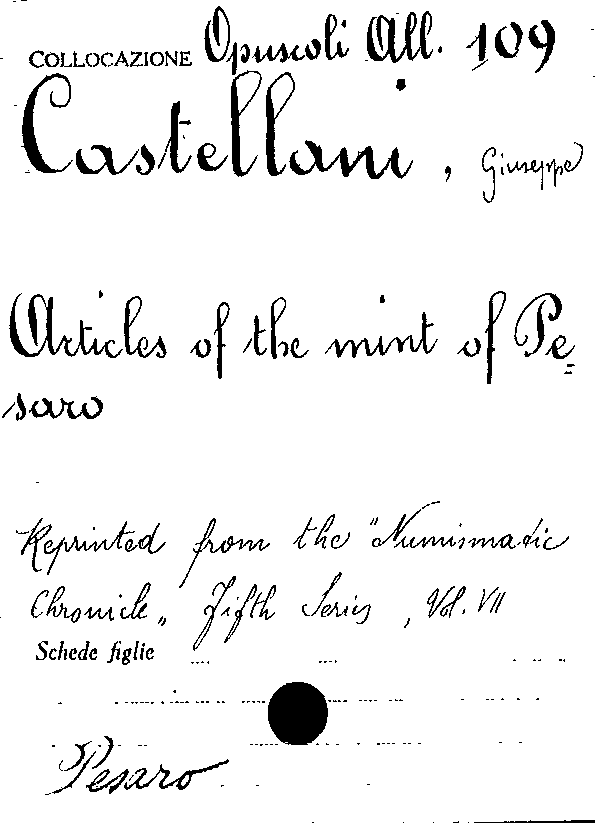 COLLOCAZIONE Opuscoli All. 109
Castellani, Giuseppe
Articles of the mint of Pe=
saro
Reprinted from the "Numismatic
Chronicle„ Fifth Series, Vol. VII
Schede figlie
Pesaro